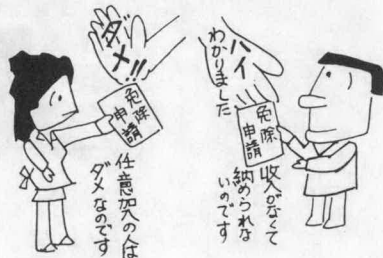 ハイ
わかりました
免除
申請
収入がなくて
納められな
いのです
ダメ!!
免除
申請
任意加入の人は
ダメなのです